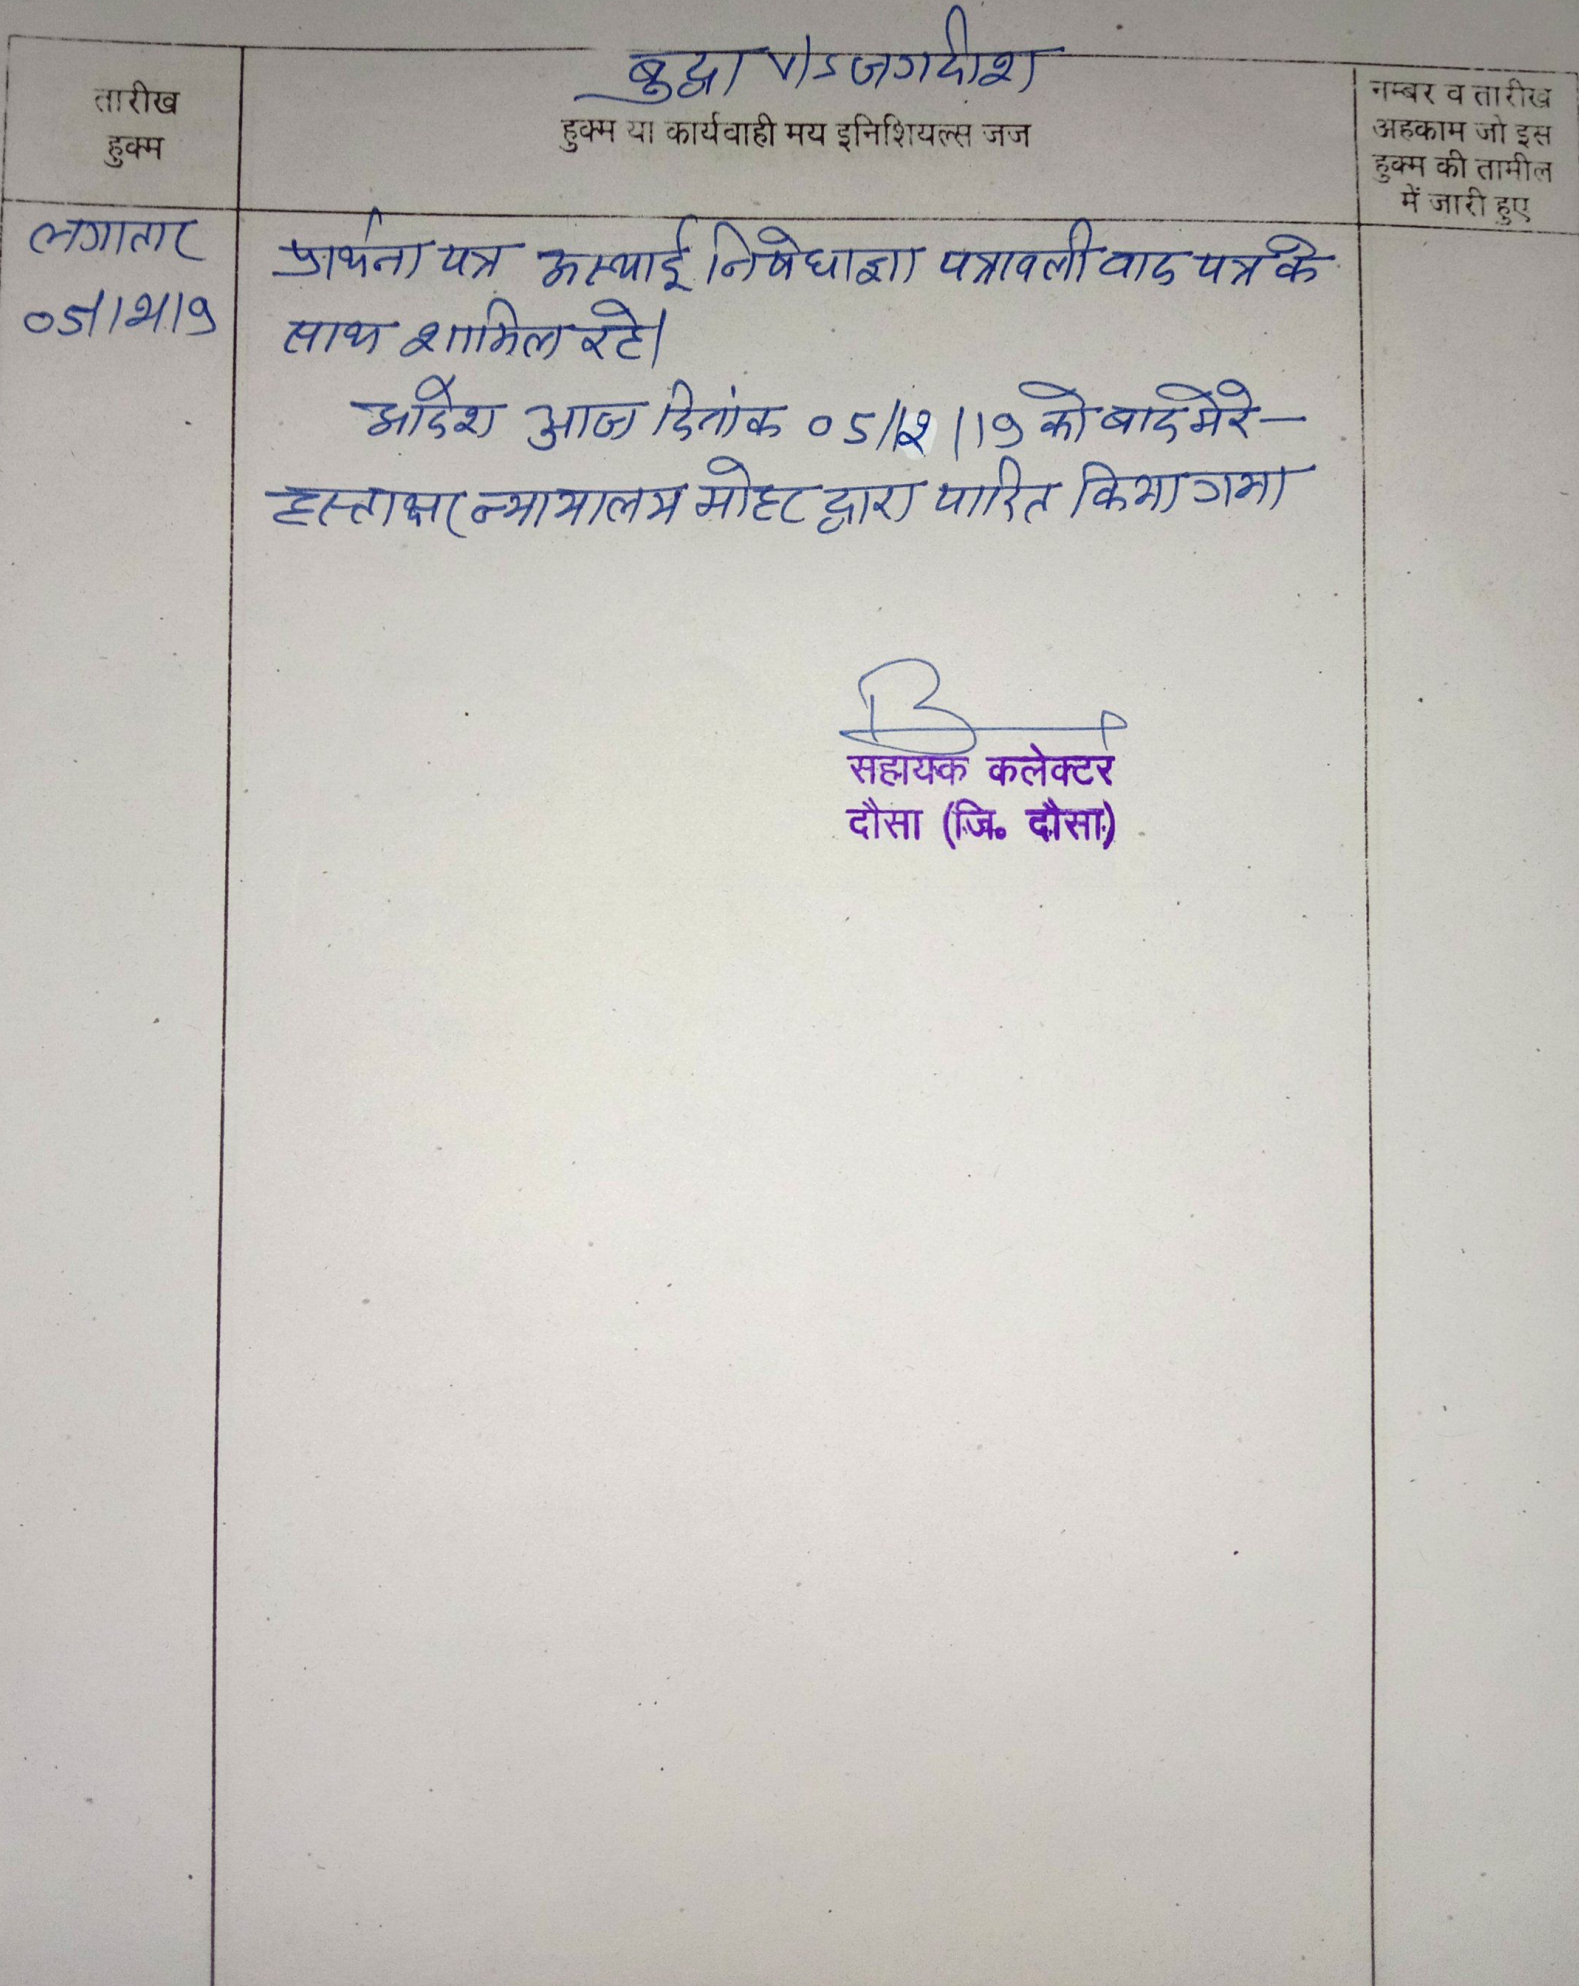 बुद्धा V/S जगदीश
तारीख
हुक्म
हुक्म या कार्यवाही मय इनिशियल्स जज
नम्बर व तारीख
अहकाम जो इस
हुक्म की तामील
में जारी हुए
लगातार
प्रार्थना पत्र अस्थाई निषेधाज्ञा पत्रावली वाद पत्र के
साथ शामिल रहे।
आदेश आज दिनांक 05/12/19 को बाद मेरे-
हस्ताक्षर न्यायालय मोहर द्वारा पारित किया गया
सहायक कलेक्टर
दौसा (जि॰ दौसा)